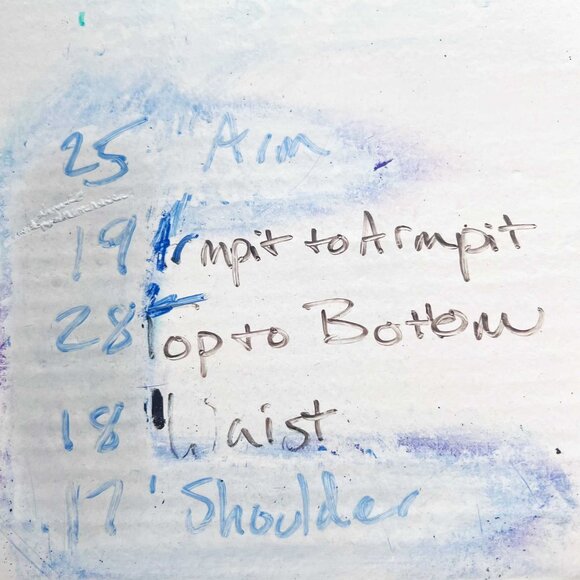 25 " Arm
19 Armpit to Armpit
28 Top to Bottom
18 " Waist
17 ' Shoulder